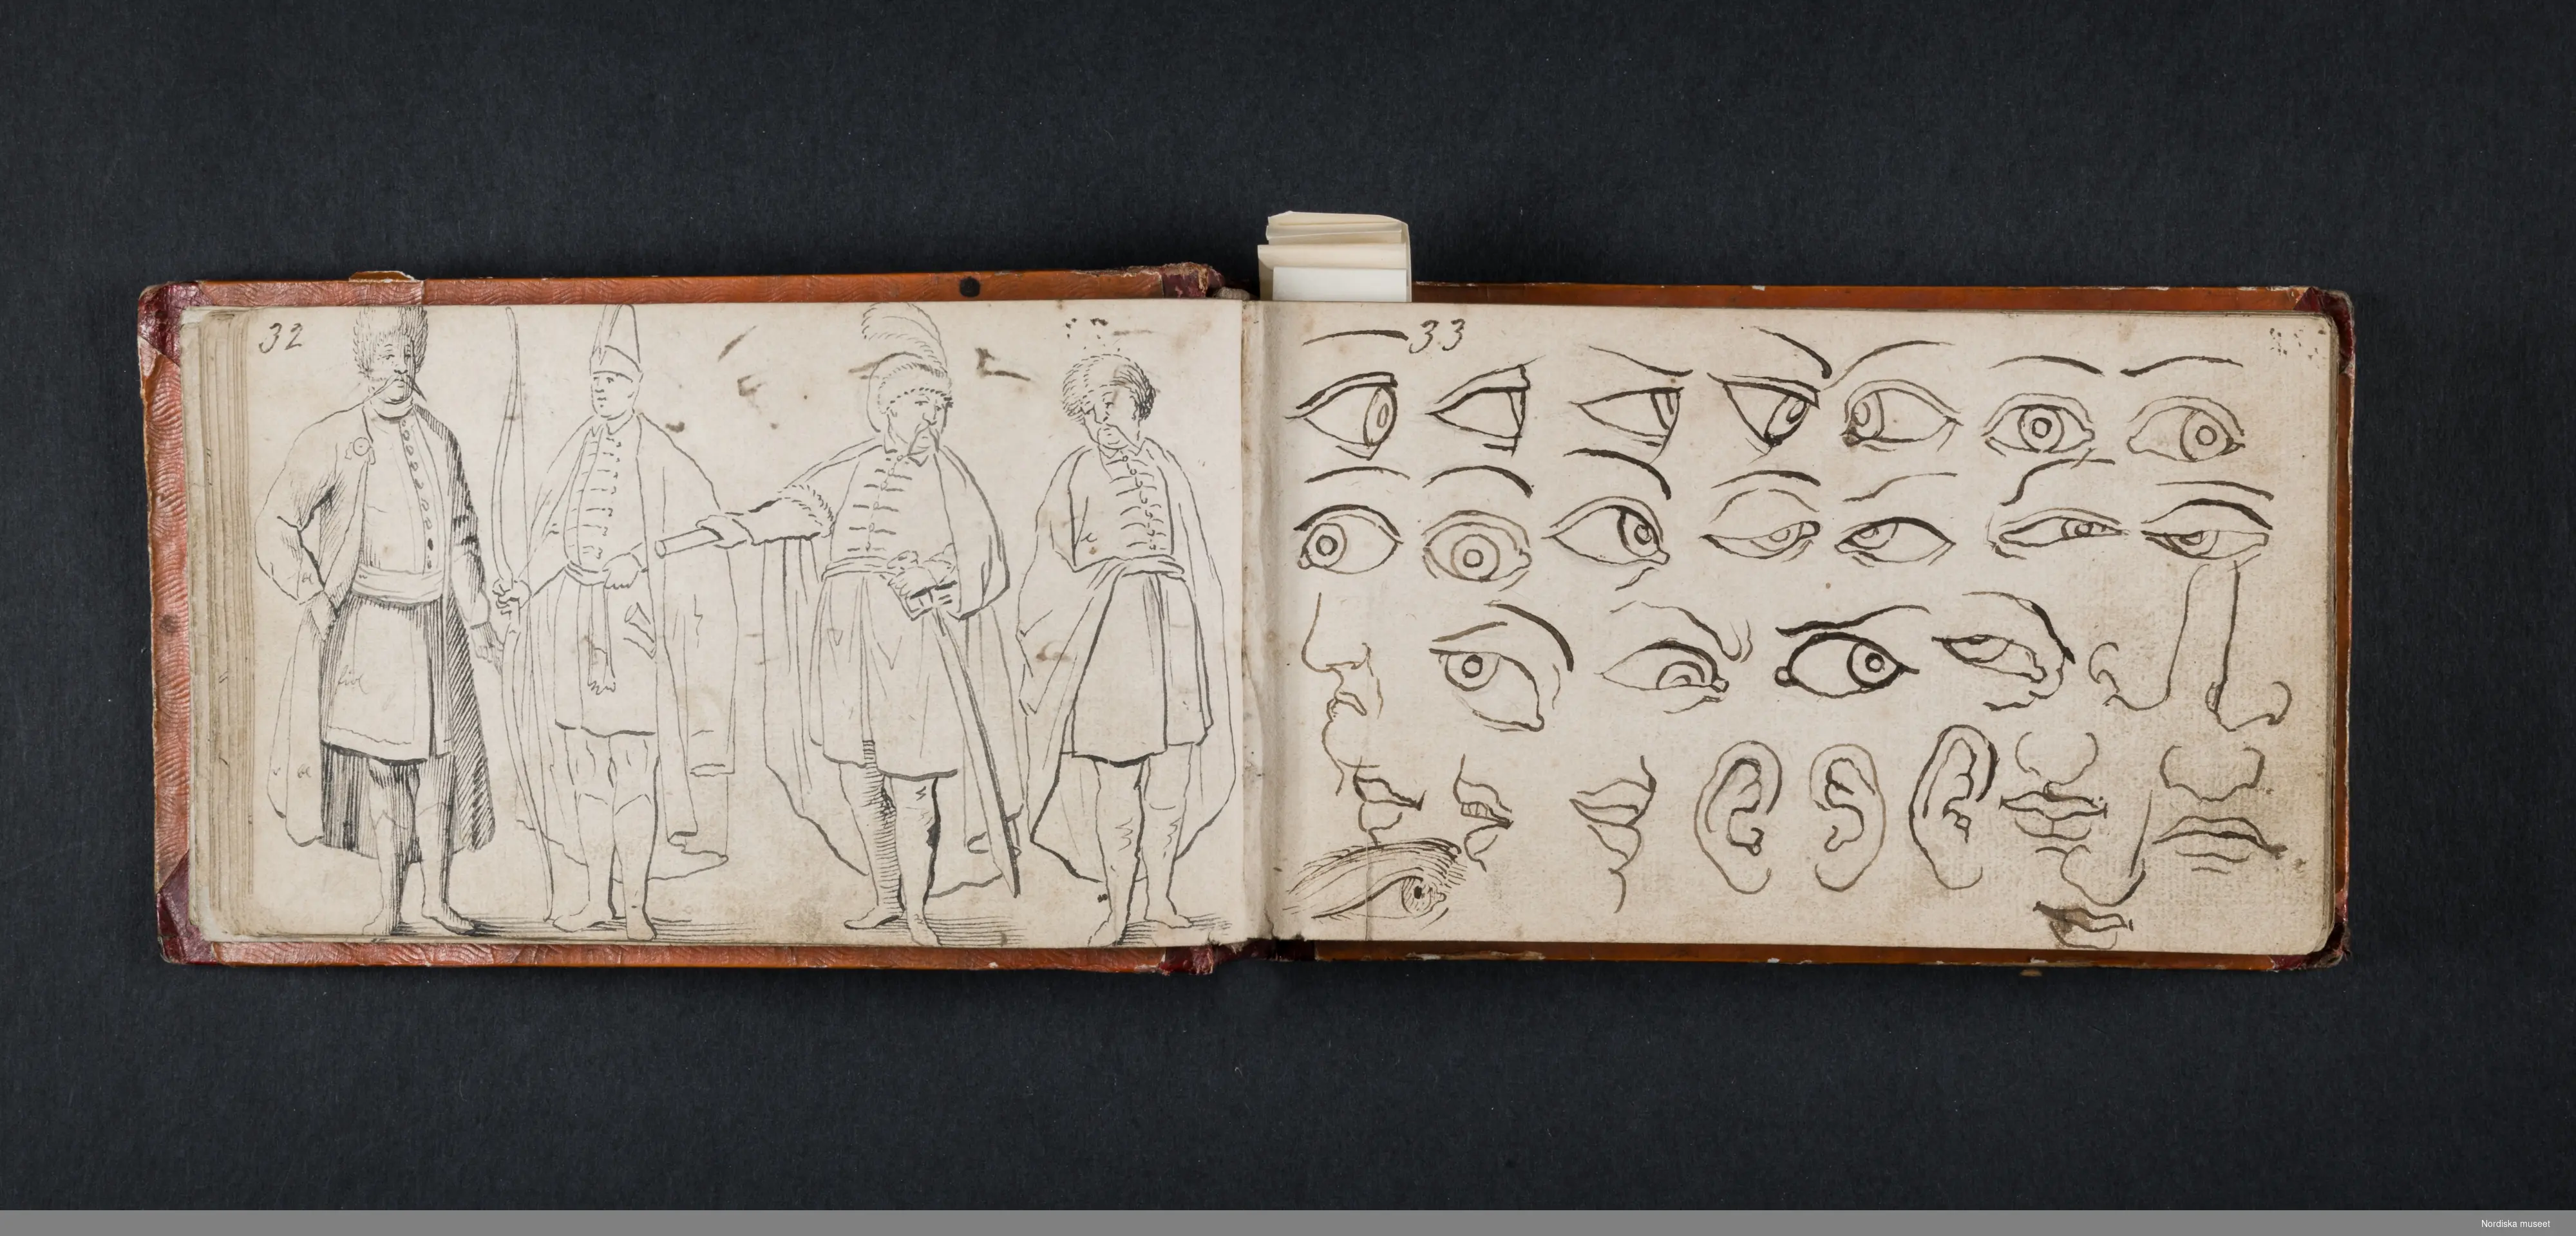 32
33
Nordiska museet